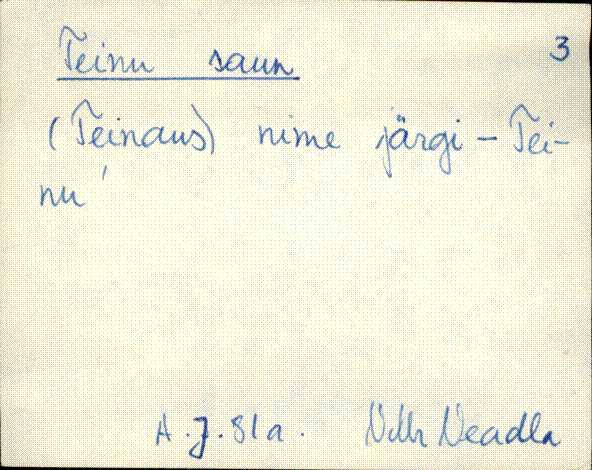 Teinu saun 3
(Teinaus) nime järgi - Tei-
nu
A. J. 81a. Neadla